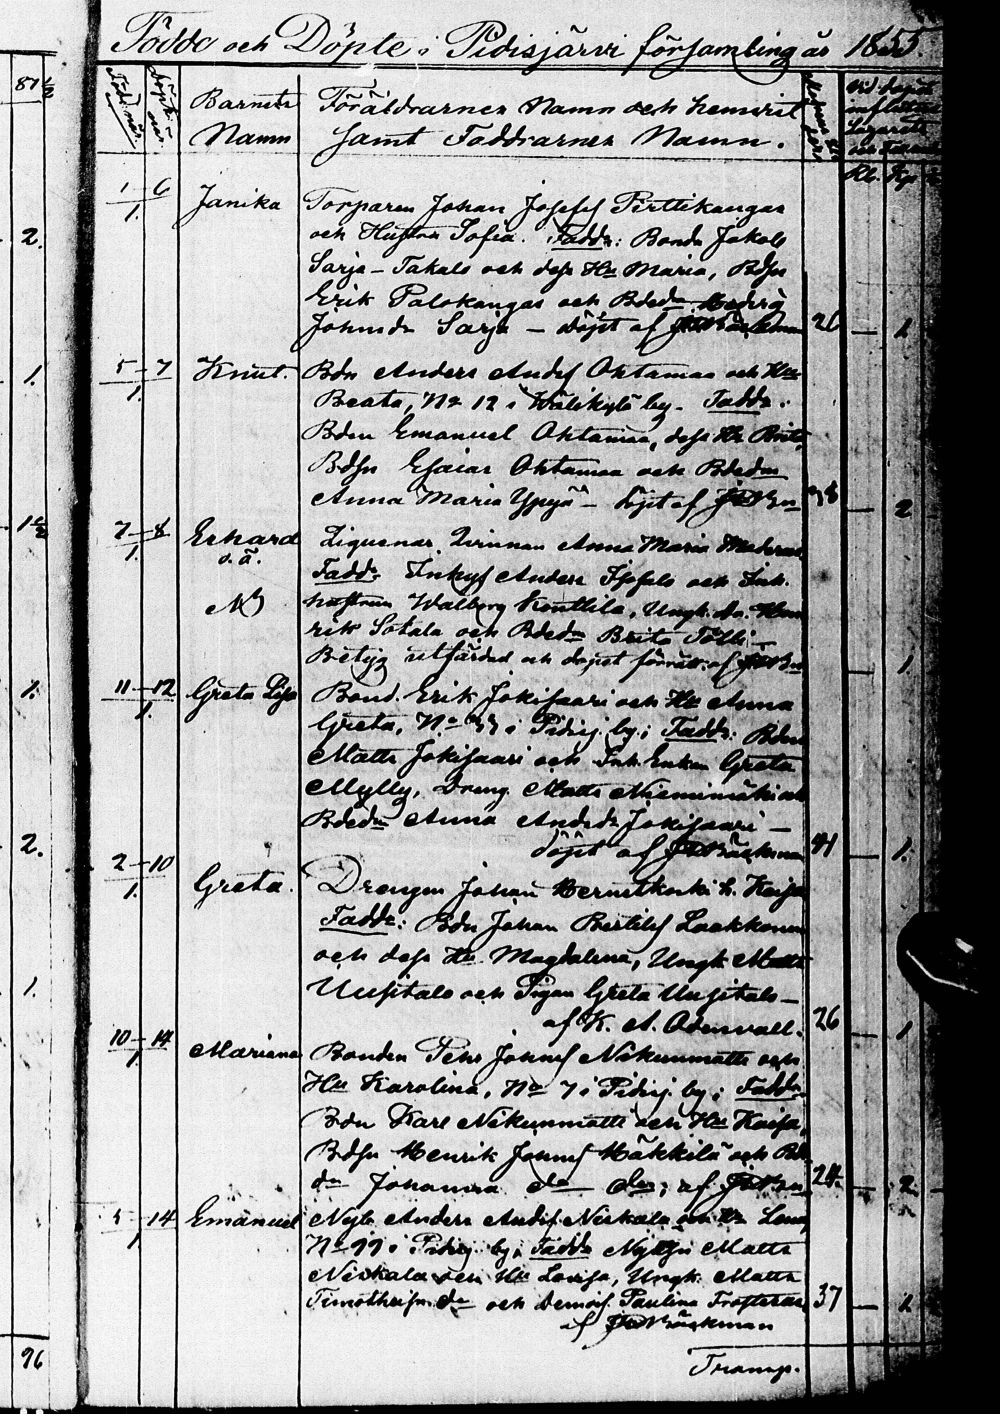 Födde och Döpte i Pidisjärvi församling år 1855.
Födde när.
Döpte när.
Barnets Namn
Föräldrarnes Namn och hemvist
samt Faddrarnes Namn.
Moderns ålder
Vid dopet
Lazarett
Rb. Kp
1–6
1.
Janika
Torparen Johan Josefsf Pirttikangas
och Hustru Sofia. Fadd: Bonden Jakob
Sarja-Takalo och dess Hu Maria, Bdsn
Erik Palokangas och Bdedn
Johnsdr Sarja – döpt af JWBäckman
26
1
5–7
1.
Knut.
Bdn Anders Andsf Ohtamaa och Hu
Beata, No 12 i Wälikylä by. Fadd:
Bden Emanuel Ohtamaa, dess Hu Brita,
Bdsn Esaias Ohtamaa och Bdedn
Anna Maria Ypyä – döpt af
38
2
7–8
1.
Erhard
o.ä.
NB
Anna Maria
Fadd: Anders och Inh.
hustrun Walborg Konttila, Ungk.
rik Sotala och Bdedn Brita Tölli –
Betyg utfärdad och dopet förrätt: af
1.
11–12
1.
Greta Lisa
Bond. Erik Jokisaari och Hu Anna
Greta, No 33 i Pidisj. by; Fadd: Bden
Matts Jokisaari och Inh. Enkan Greta
Mylly, Dreng. Matts Nieminmäki och
Bdedn Anna Andsdr Jokisaari –
döpt af JWBäckman
41
1.
2–10
1.
Greta.
Drengen Johan h. Kaisa
Fadd: Bdn Johan Bertilsf Laakkonen
och dess Hu Magdalena, Ungk. Matts
Uusitalo och Pigan Greta Uusitalo –
af K. A. Odenvall.
26
1
10–14
1.
Mariana
Bonden Pehr Johnsf Niskunmatti och
Hu Karolina, No 7 i Pidisj. by; Fadd:
Bdn Karl Niskunmatti och Hu Kaisa,
Bdsn Henrik Johnsf Mäkkilä och Bde
dn Johanna do do; af
24
2
5–14
1
Emanuel
Nyb. Anders Andsf. Niskala och Hu Lena,
No 99 i Pidisj. by; Fadd: Nybgn Matts
Niskala och Hu Lovisa, Ungk. Matts
Timotheisn do och Demois. Paulina Frosterus
af JWBäckman
37
1
Transp.
81 1/2
2.
1.
1 1/2
1.
2.
1.
96